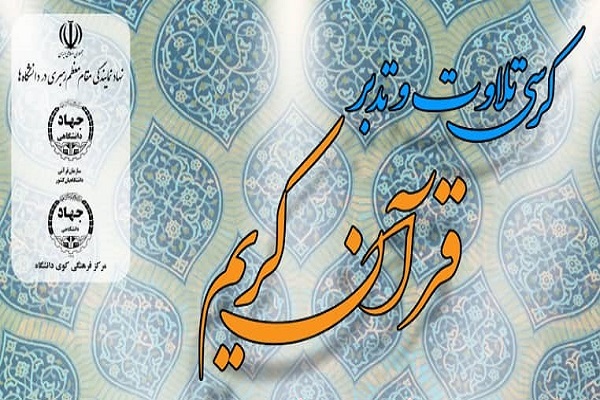 کرسی تلاوت و تدبر
قرآن کریم
جمهوری اسلامی ایران
نهاد نمایندگی مقام معظم رهبری در دانشگاه‌ها
جهاد
دانشگاهی
سازمان قرآنی
دانشگاهیان کشور
جهاد
دانشگاهی
مرکز فرهنگی کوی دانشگاه